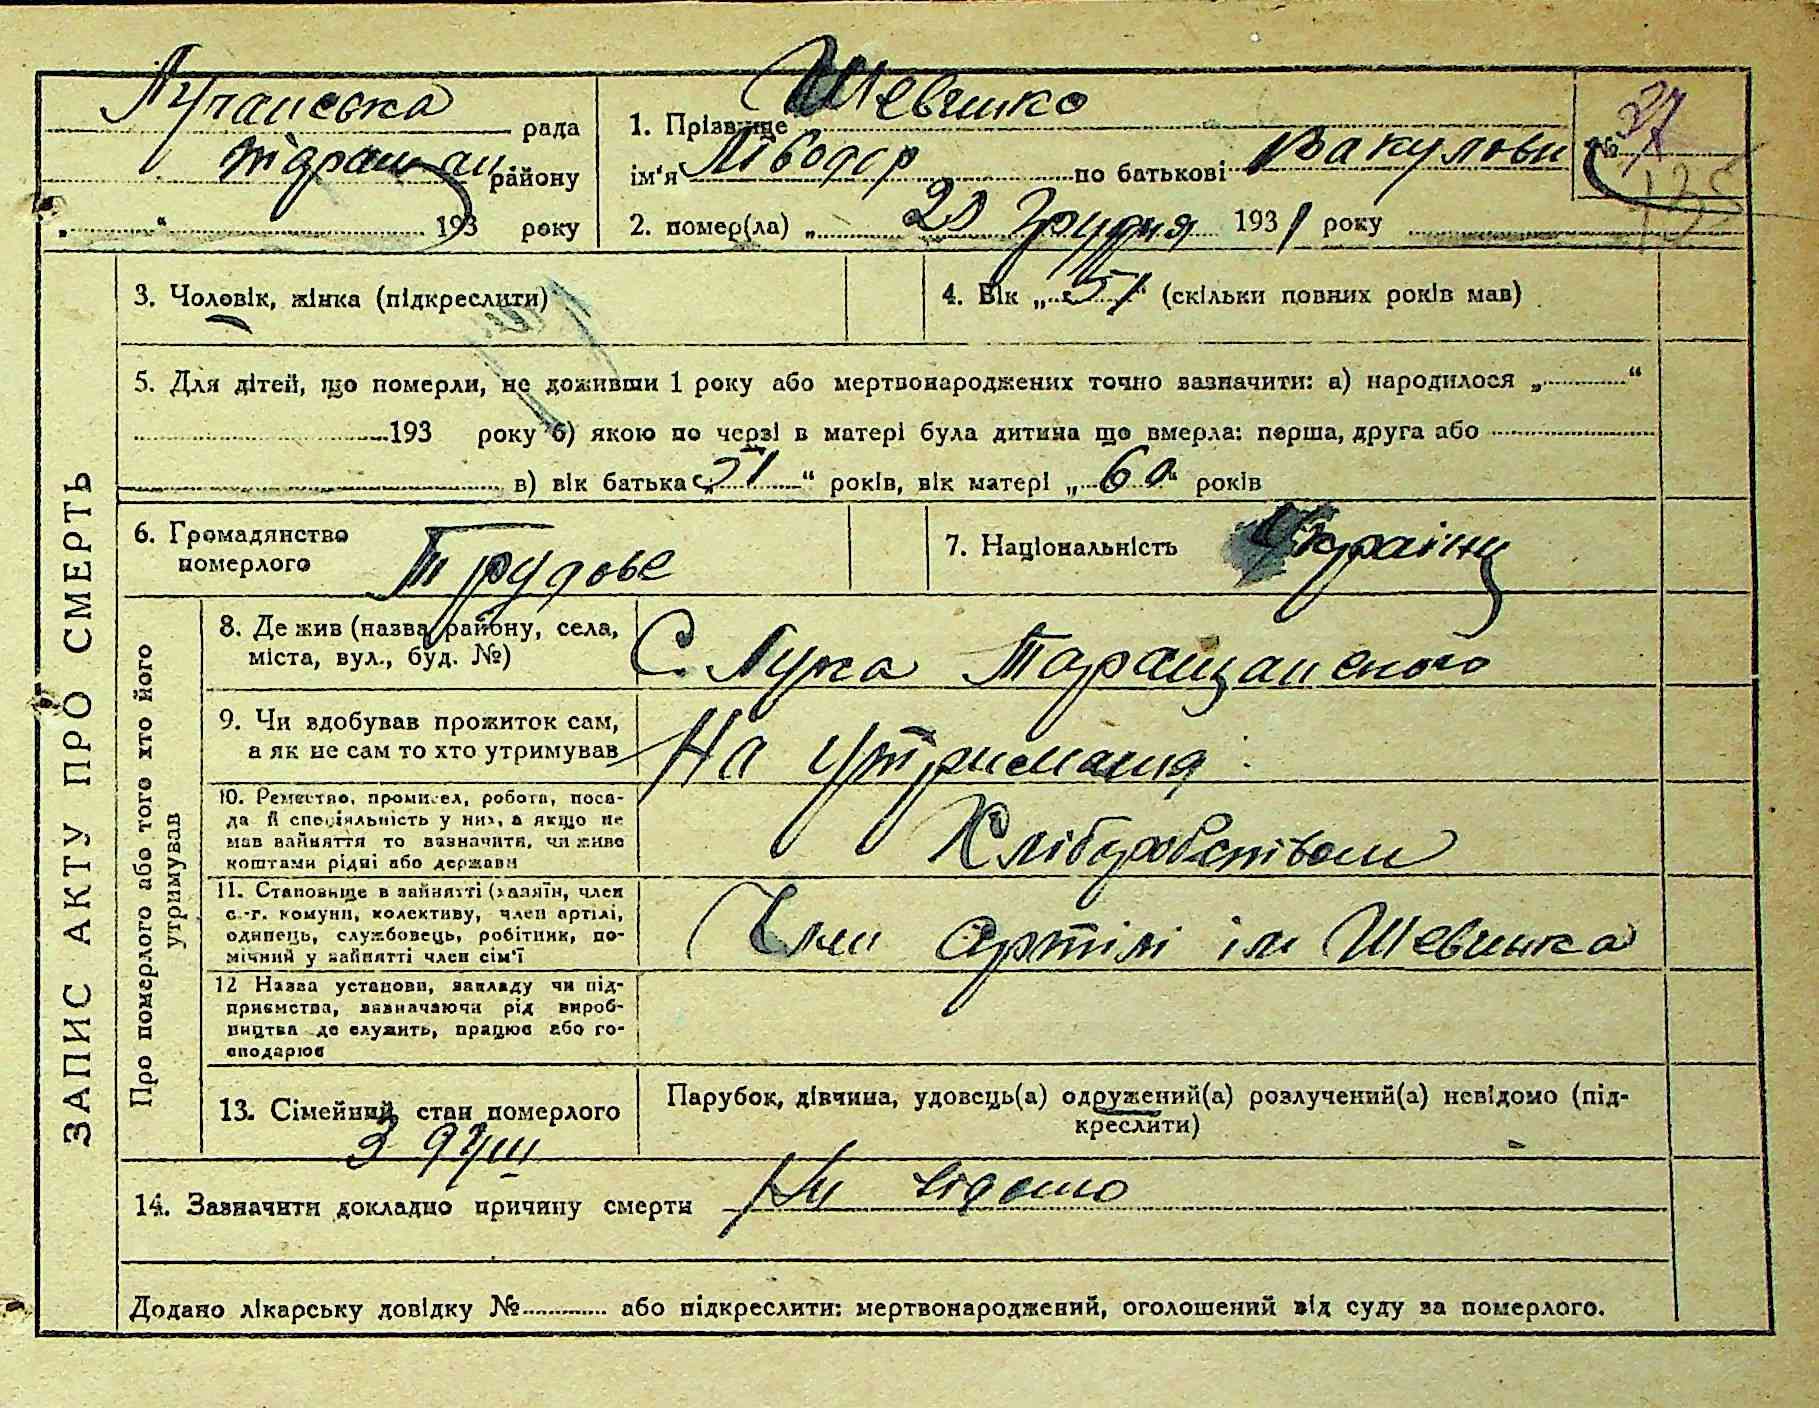 Лучанська рада
Таращан району
„ “ 193 року
1. Прізвище Шевчинко
ім'я по батькові Вакулови
2. помер(ла) „ Грудня 1931 року
№ 37
135
ЗАПИС АКТУ ПРО СМЕРТЬ
3. Чоловік, жінка (підкреслити)
4. Вік „ 51 “ (скільки повних років мав)
5. Для дітей, що померли, не доживши 1 року або мертвонароджених точно зазначити: а) народилося „ “
193 року б) якою по черзі в матері була дитина що вмерла: перша, друга або
в) вік батька „ 51 “ років, вік матері „ 60 “ років
6. Громадянство
померлого
Трудове
7. Національність Українц
Про померлого або того хто його
утримував
8. Де жив (назва району, села,
міста, вул., буд. №)
С. Лука Таращанского
9. Чи здобував прожиток сам,
а як не сам то хто утримував
На утриманя
10. Ремество, промисел, робота, поса-
да й спеціяльність у них, а якщо не
мав зайняття то зазначити, чи живе
коштами рідні або держави
Хліборобством
11. Становище в зайнятті (хазяїн, член
с.-г. комуни, колективу, член артілі,
одинець, службовець, робітник, по-
мічний у зайнятті член сім'ї
Член артілі ім Шевчинка
12 Назва установи, закладу чи під-
приємства, зазначаючи рід вироб-
ництва де служить, працює або го-
сподарює
13. Сімейний стан померлого
3 душ
Парубок, дівчина, удовець(а) одружений(а) розлучений(а) невідомо (під-
креслити)
14. Зазначити докладно причину смерти Ни відомо
Додано лікарську довідку № або підкреслити: мертвонароджений, оголошений від суду за померлого.